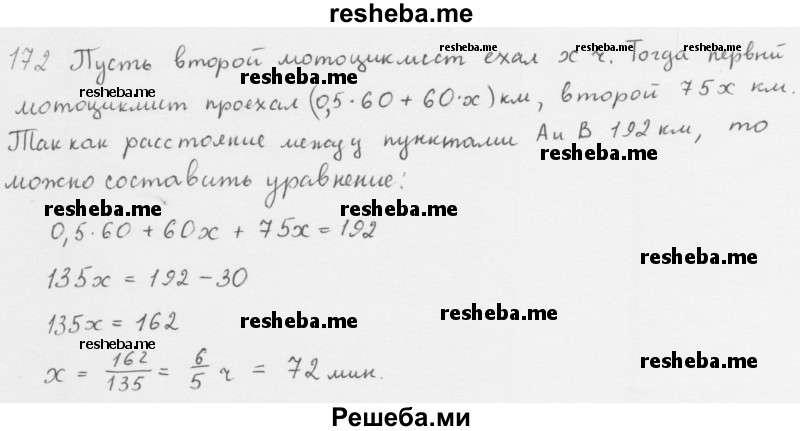 resheba.me
172 Пусть второй мотоциклист ехал x ч. Тогда первый
resheba.me resheba.me resheba.me
мотоциклист проехал (0,5·60 + 60·x) км, второй 75x км.
Так как расстояние между пунктами A и B 192 км, то
resheba.me
можно составить уравнение:
resheba.me resheba.me
0,5·60 + 60x + 75x = 192
resheba.me
135x = 192 - 30
135x = 162
resheba.me resheba.me
resheba.me
x = 162/135 = 6/5 ч = 72 мин.
resheba.me
Решеба.ми